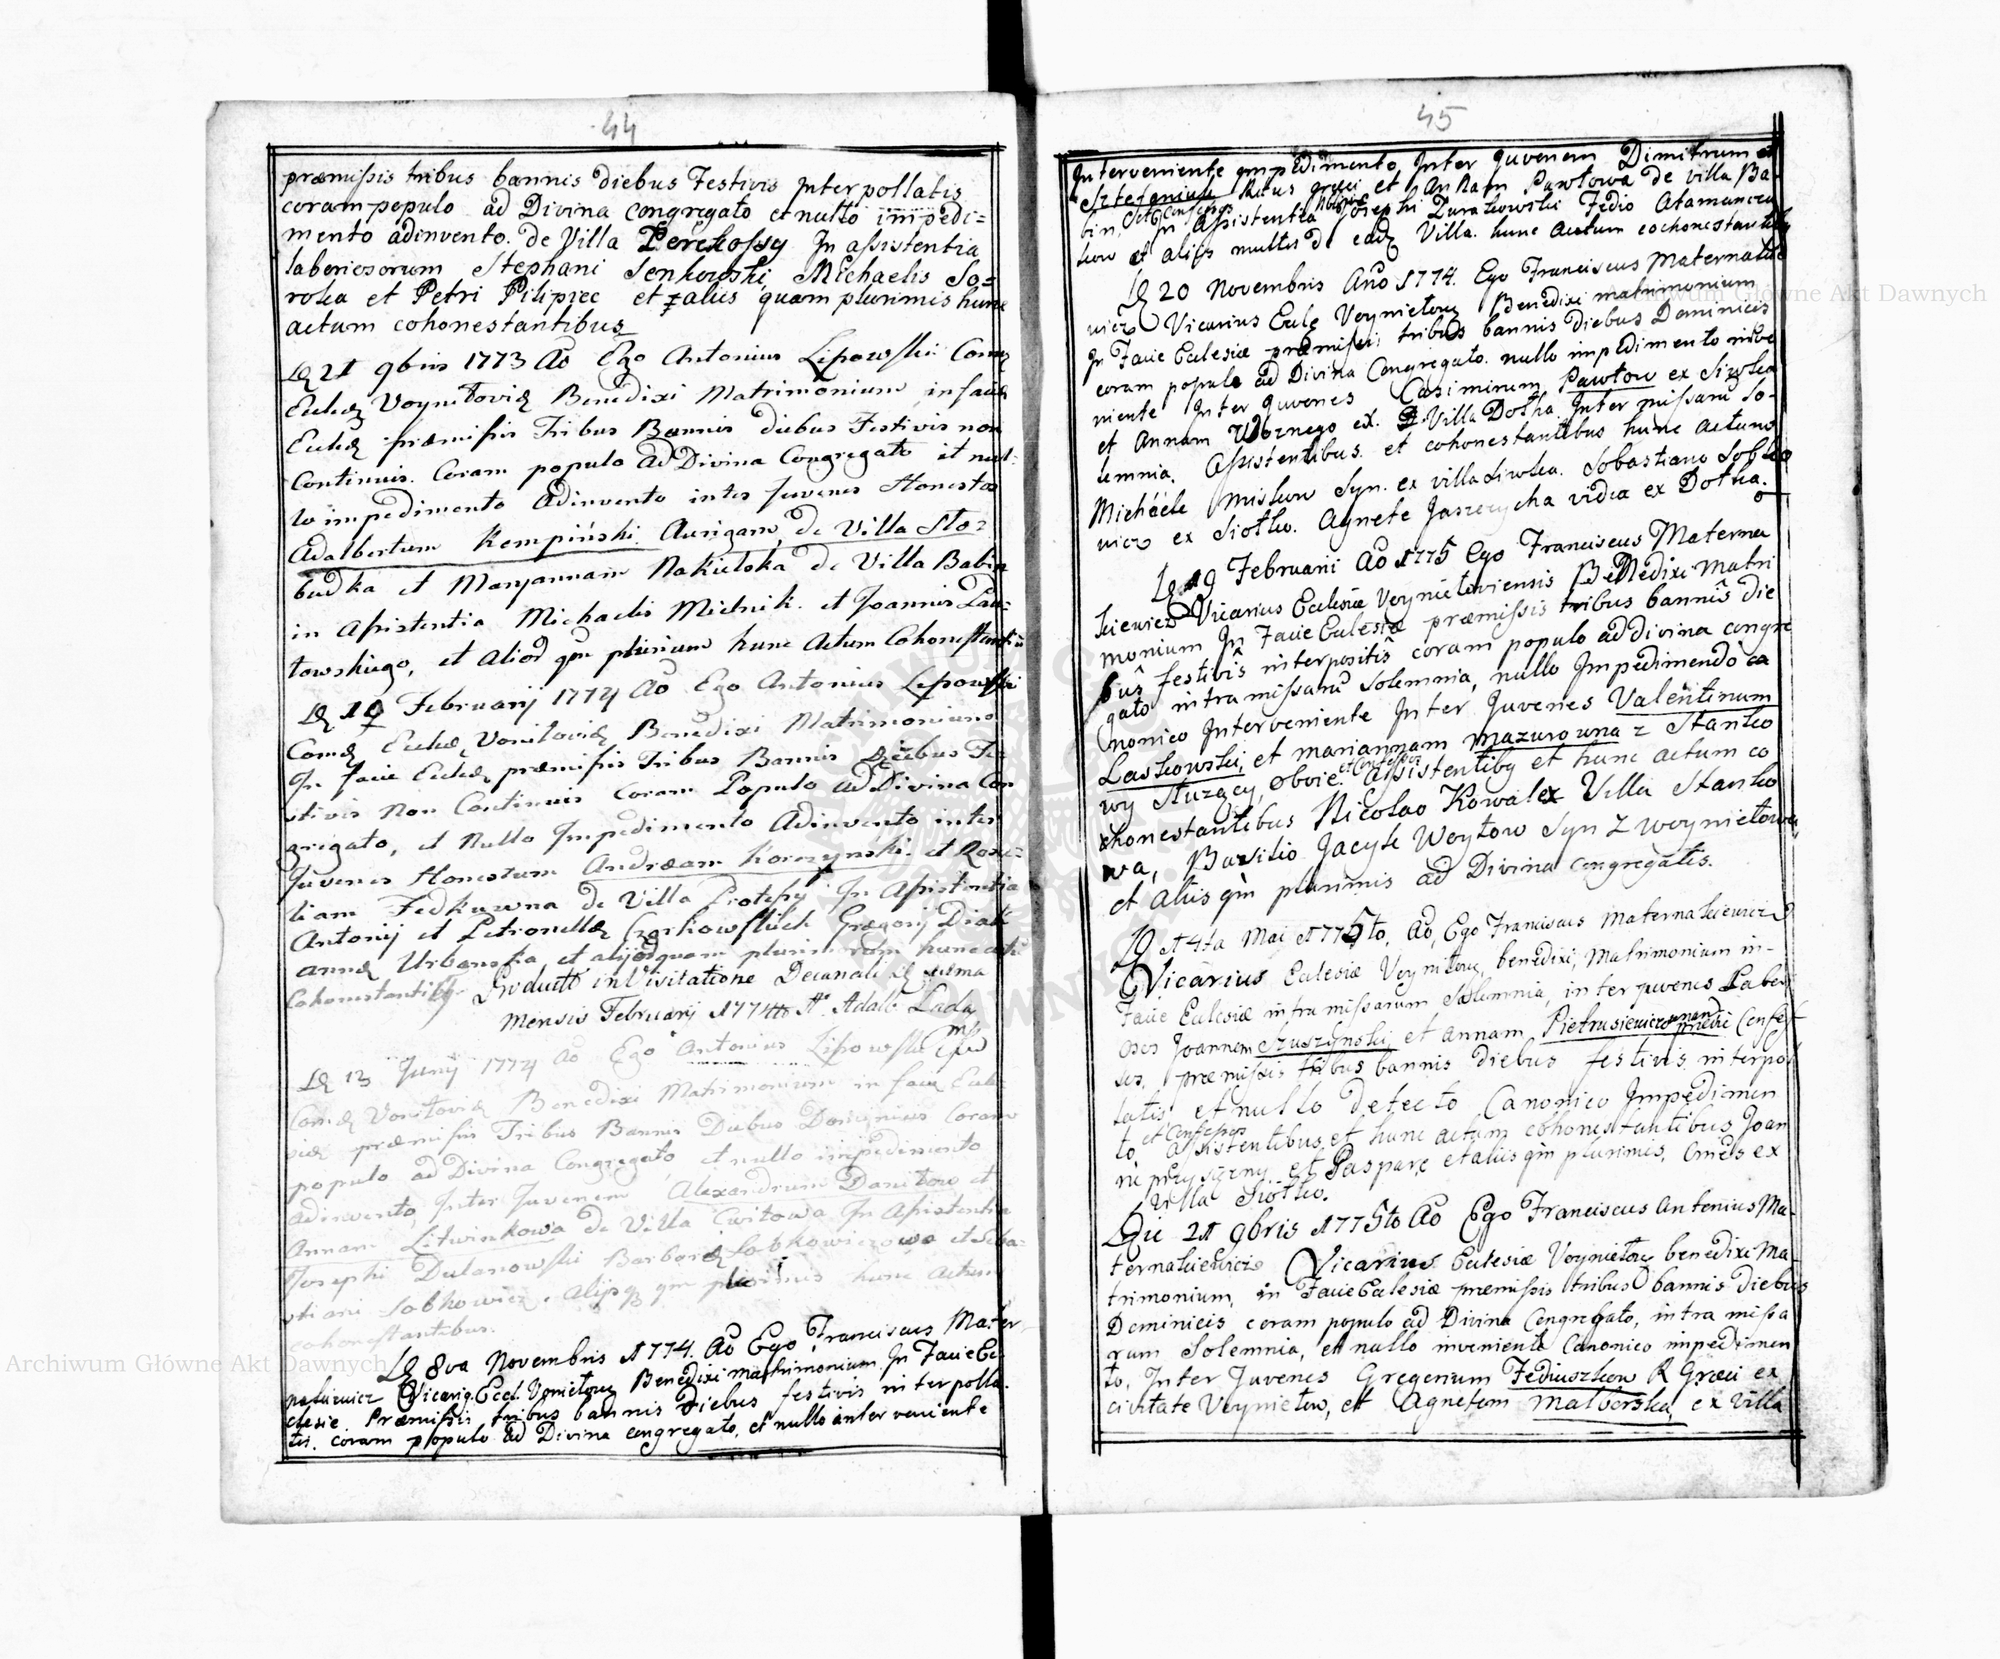 44
præmissis tribus bannis diebus Festivis Interpollatis
coram populo ad Divina congregato et nullo impedi=
mento adinvento. de Villa Perekossy In assistentia
laboriosorum Stephani Senkowski, Michaelis So=
roka et Petri Pilipiec et aliis quam plurimis hunc
actum cohonestantibus
21 9bris 1773 Ao Ego Antonius Lipowski Comen
Eccl Voynilovi Benedixi Matrimonium in facie
Eccl præmissis Tribus Bannis diebus Festivis non
Continuis. Coram populo ad Divina Congregato et nul-
lo impedimento Adinvento inter Juvenes Honestos
Adalbertum Kempiński Aurigam, de Villa Sło=
budka et Maryannam Rakulska de Villa Babin
in Assistentia Michaelis Mielnik. et Joannis Pau=
towskiego, et Aliod qm plurium hunc Actum Cohonestanti
Februarij 1774 Ao Ego Antonius Lipowski
Com Eccl Voniloviæ Benedixi Matrimonium
In facie Eccl præmissis Tribus Bannis Diebus Fe
stivis non Continuis Coram Populo ad Divina Con
gregato, et Nullo Impedimento Adinvento inter
Juvenes Honestum Andræam Korczynski et Rosa-
liam Fedkuwna de Villa Protesy In Assistentia
Antonij et Petronellæ Czerkowskich Gregorij Diak
Annæ Urbanska, et alijodquam plurimorum hunc actu
Cohonestantibq Producto in Visitatione Decanali
Mensis Februarij 1774to A. Adalb: Lada
13 Junij 1774 Ao Ego Antonius Lipowski
Com Voniloviæ Benedixi Matrimonium in facie Eccle
siæ præmissis Tribus Bannis Diebus Dominicis Coram
populo ad Divina Congregato et nullo impedimento
adinvento, Inter Juvenem Alexandrum Danilow et
Annam Litwinkowa de Villa Cwitowa In Assistentia
Josephi Dulanowski Barbaræ Sobkowiczowa et Seba-
stiani Sobkowicz. Alijsq qm plurimis hunc Actum
cohonestantibus.
8va Novembris 1774. Ao Ego Franciscus Mater
nakiewicz Vicariq. Eccl. Voniłow Benedixi matrimonium In Facie Ec
clesie Præmissis tribus bannis Diebus festivis interpolla-
tis. coram populo ad Divina congregato, et nullo interveniente
45
Interveniente impedimento Inter Juvenem Dimitrum et
Sztefaniuk Ritus græci et Annam Pawłowa de villa Ba-
bin. In Assistentia Josephi Zurakowski Fedio Atamanczu
kow et alijs multis de ead Villa. hunc Actum cochonestantibq
20 Novembris Ano 1774. Ego Franciscus Maternakie
wicz Vicarius Eccle Voyniełow Benedixi matrimonium
In Facie Eclesiæ præmissis tribus bannis diebus Dominicis
coram populo ad Divina Congregato. nullo impedimento inter
niente Inter Juvenes Casimirum Pawłow ex Siwka
et Annam Woznego ex. Villa Dołha Inter missaru So-
lemnia. Assistentibus. et cohonestantibus hunc actum
Michæele Miskow Syn. ex villa Siwka. Sobastiano Sobko
wicz ex Siołko. Agnete Jaszczycha vidua ex Dołha.
19 Februarii Ao 1775 Ego Franciscus Materna
kiewicz Vicarius Ecclesiæ Voyniełoviensis Benedixi Matri
monium In Facie Eclesiæ præmissis tribus bannis die
bus festivis interpositis coram populo ad divina congre
gato intra missaru Solemnia, nullo Impedimendo ca
nonico Interveniente Inter Juvenes Valentinum
Laskowski, et mariannam mazurowna z Stanko
wy Słuzący, oboie. assistentibq et hunc actum co
et Confessos
chonestantibus Nicolao Kowalex Villa Stanko
wa, Basilio Jacyk Woytow Syn z woyniełowa,
et aliis qm plurimis ad Divina congregatis.
14ta Mai 1775to, Ao, Ego Franciscus Maternakiewicz
Vicarius Eclesiæ Voynilow, benedixi, Matrimonium in-
Facie Eclesiæ intra missarum Solemnia, inter juvenes Labori
osos Joannem Szuszynski et Annam Pietrusiewiczowna Confes
sos, præmissis tribus bannis diebus festivis interpol
latis et nullo detecto Canonico Impedimen
to et Confessos assistentibus, et hunc actum cohonestantibus Joan
ne Przysiezny et Gaspare et aliis qm plurimis, omes ex
Villa Siołko.
Die 21 9bris 1775to Ao Ego Franciscus Antonius Ma-
ternakiewicz Vicarius Eclesiæ Voyniełow benedixi Ma-
trimonium, in Facie Eclesiæ præmissis tribus bannis Diebus
Dominicis coram populo ad Divina Congregato, intra missa
rum Solemnia, et nullo inveniento Canonico impedimen
to, Inter Juvenes Gregorium Fediuszkow R Græci ex
civitate Voyniełow, et Agnetem Malborska, ex villa
Archiwum Główne Akt Dawnych
Archiwum Główne Akt Dawnych